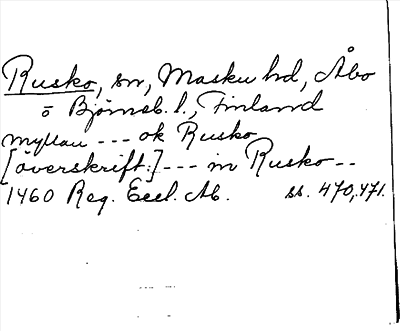 Rusko, sn, Masku hd, Åbo
o Bjömeb. l., Finland
Myllau --- ok Rusko
[överskrift:] --- m Rusko --
1460 Reg. Eccl. Ab. ss. 470, 471.